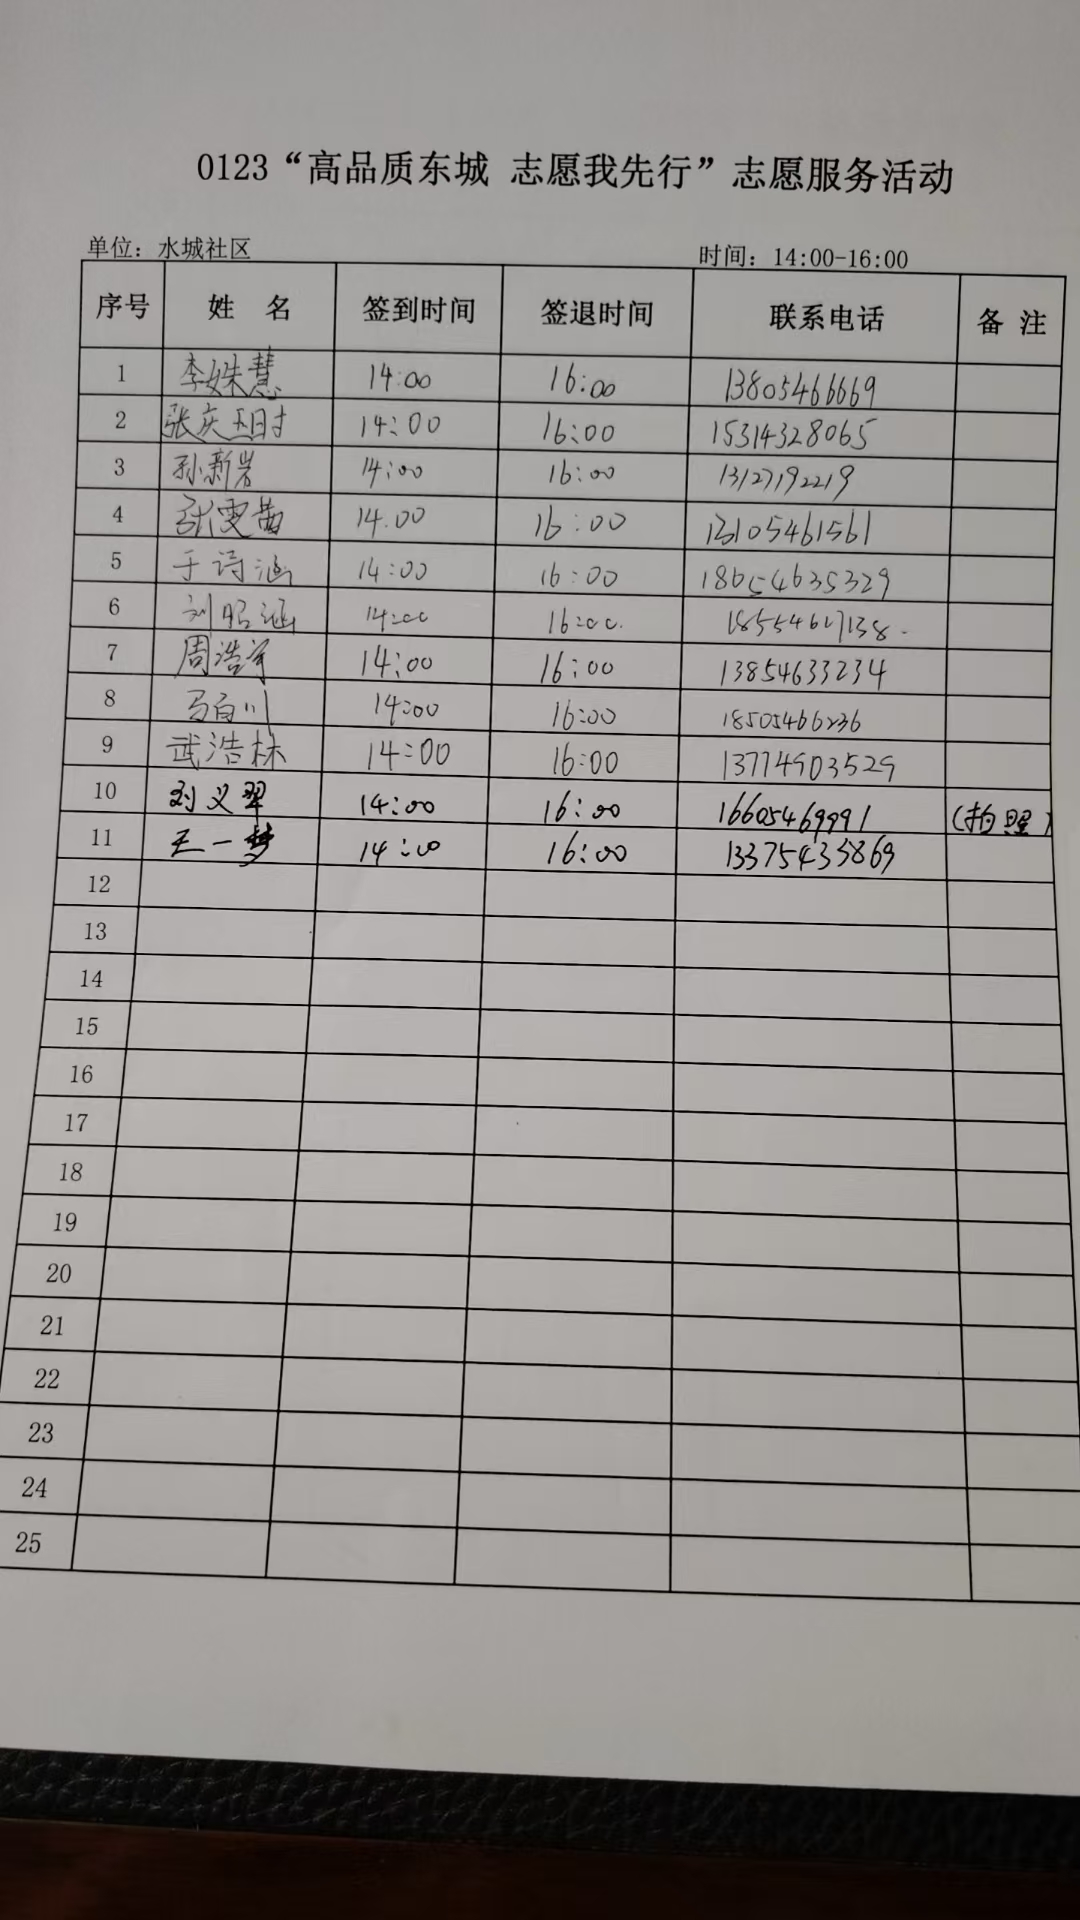 0123“高品质东城 志愿我先行”志愿服务活动
单位：水城社区 时间：14:00-16:00
序号 姓 名 签到时间 签退时间 联系电话 备 注
1 李姝慧 14:00 16:00 13805466669
2 张庆玥 14:00 16:00 15314328065
3 孙新岩 14:00 16:00 13127192219
4 张雯茜 14:00 16:00 13105461561
5 于诗涵 14:00 16:00 18654635329
6 刘昭涵 14:00 16:00
7 周浩宇 14:00 16:00 13854633234
8 马百川 14:00 16:00 18505466236
9 武浩林 14:00 16:00 13714903529
10 刘义翠 14:00 16:00 16605469991 （拍照）
11 王一梦 14:00 16:00 13375435869
12
13
14
15
16
17
18
19
20
21
22
23
24
25